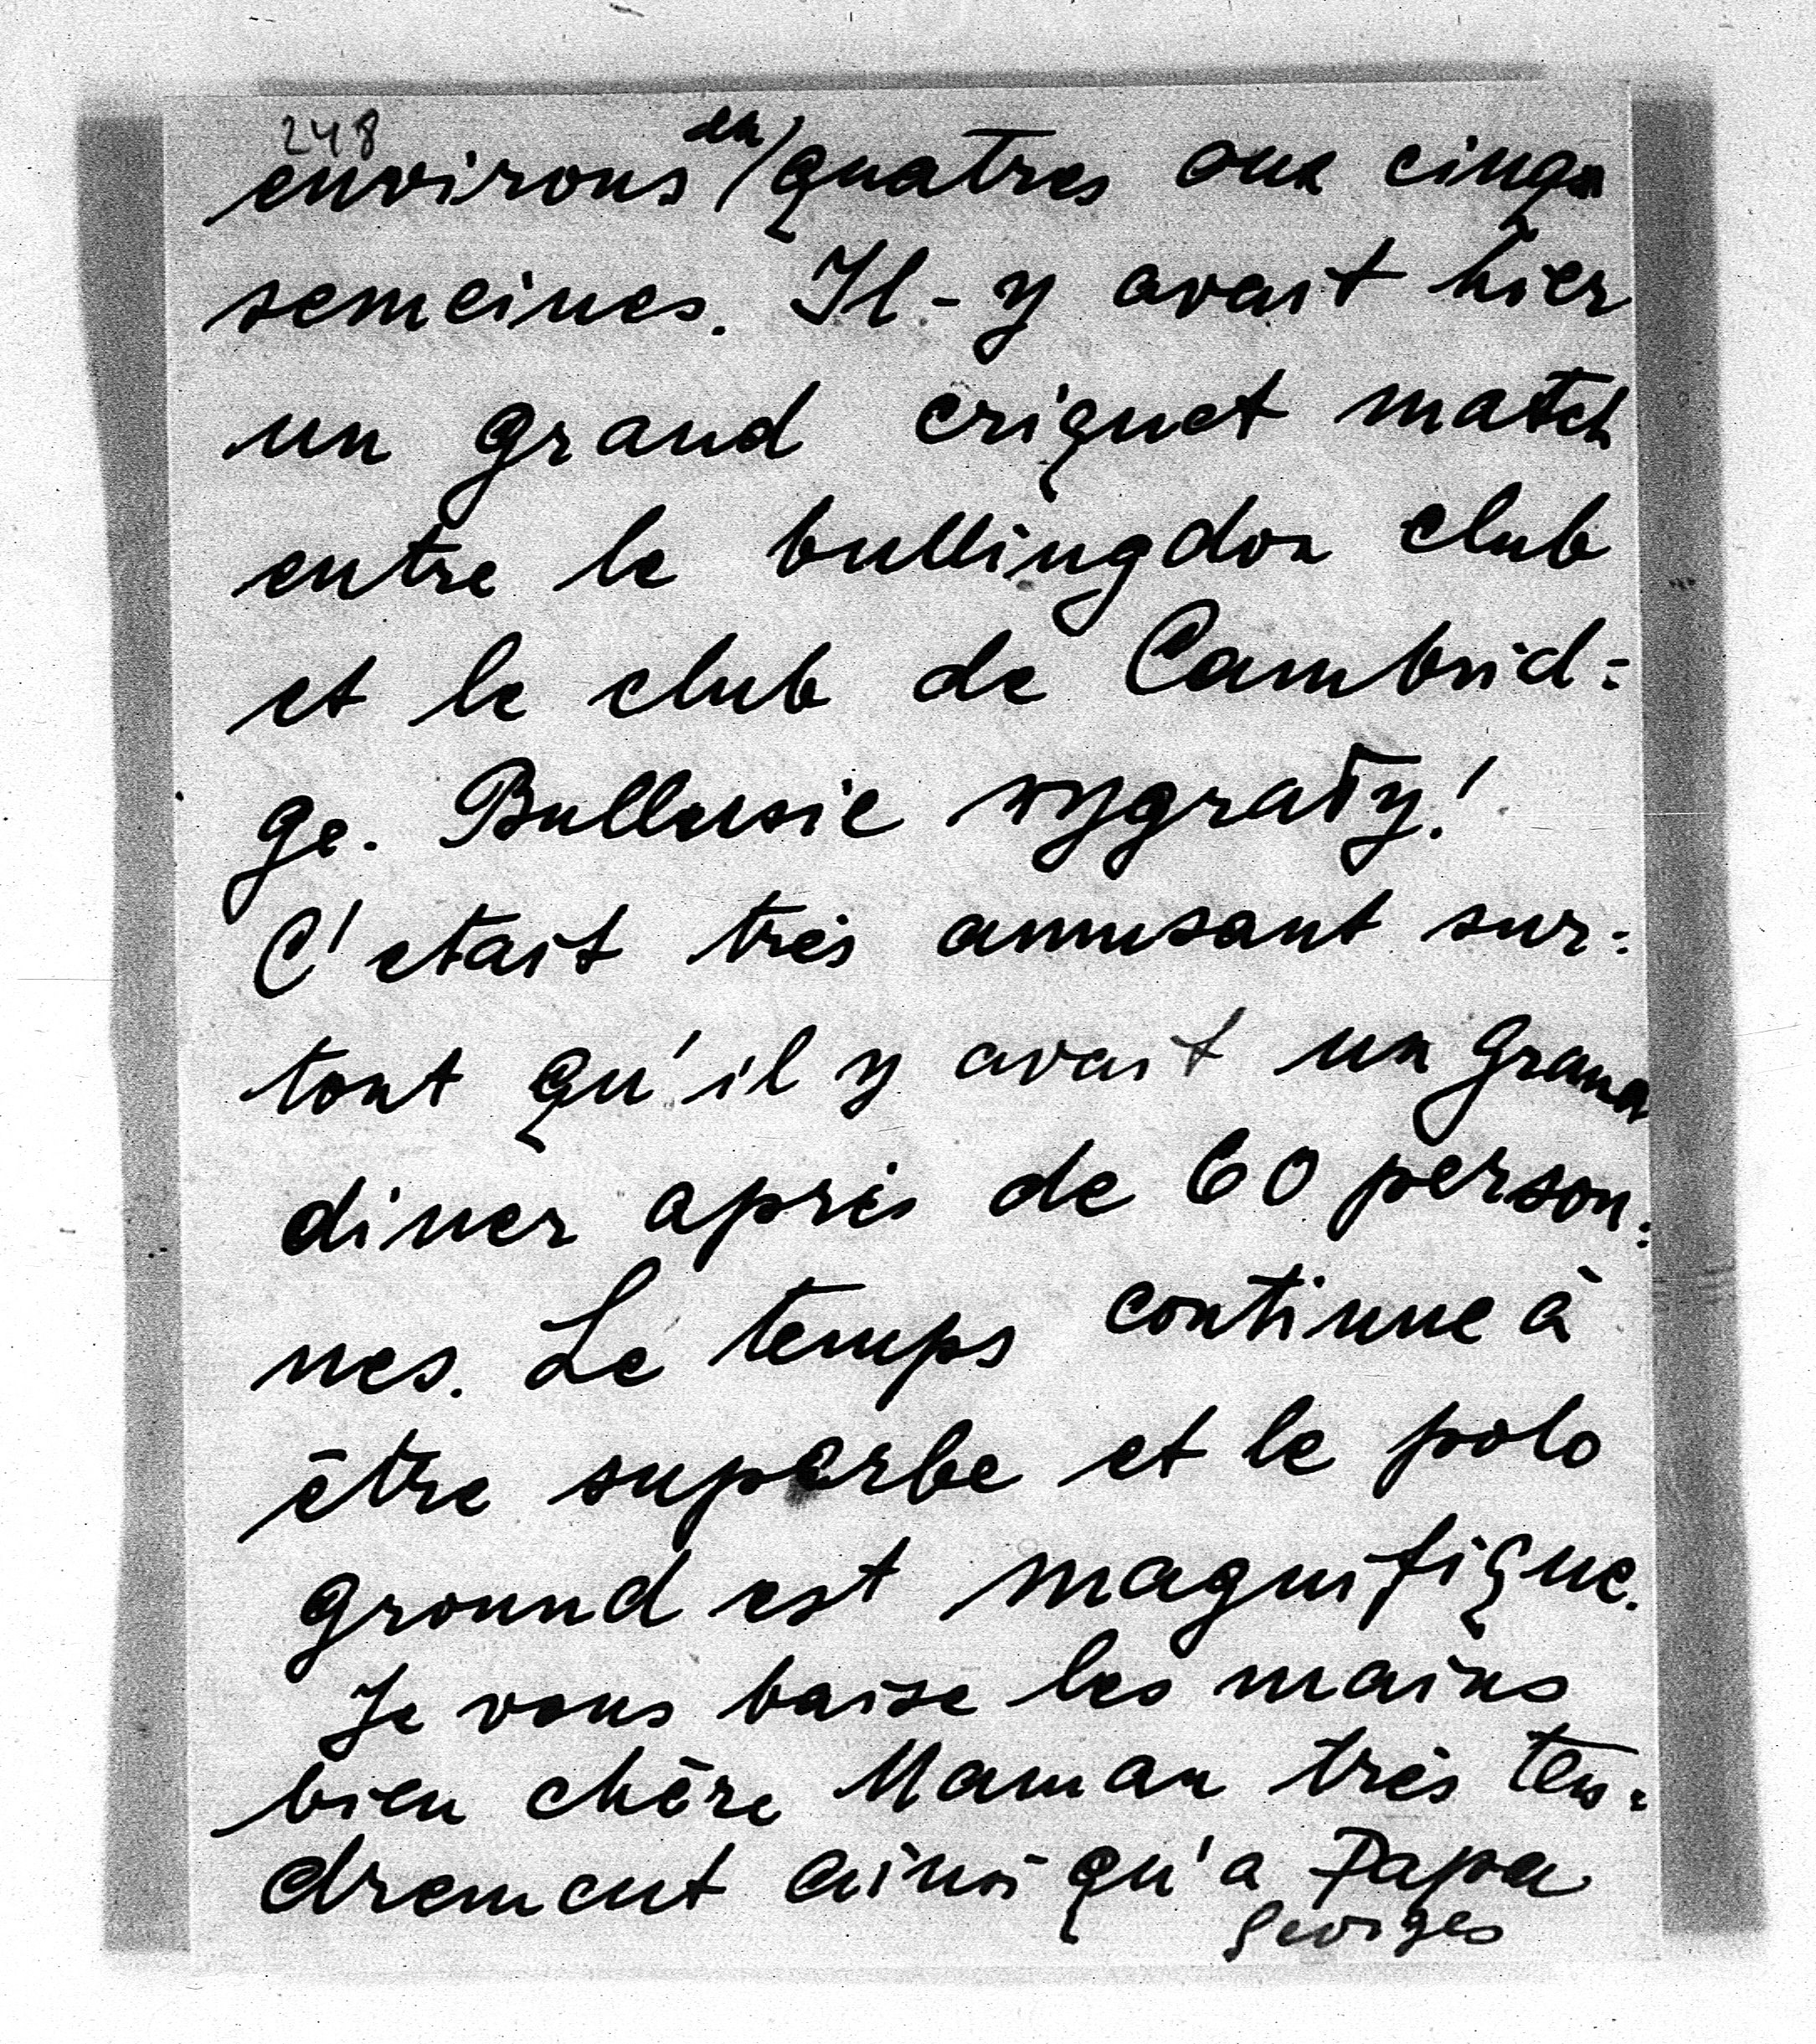 248
environs en quatres oux cinqs
semeines. Il-y avait hier
un grand criquet match
entre le bullingdon club
et le club de Cambrid=
ge. Bullersie wygrały!
C'etait très amusant sur=
tout qu'il y avait un grand
diner après de 60 person=
nes. Le temps continue à
être superbe et le polo
ground est magnifique.
Je vous baise les mains
bien chère Maman très ten=
drement ainsi qu'a Papa
Georges